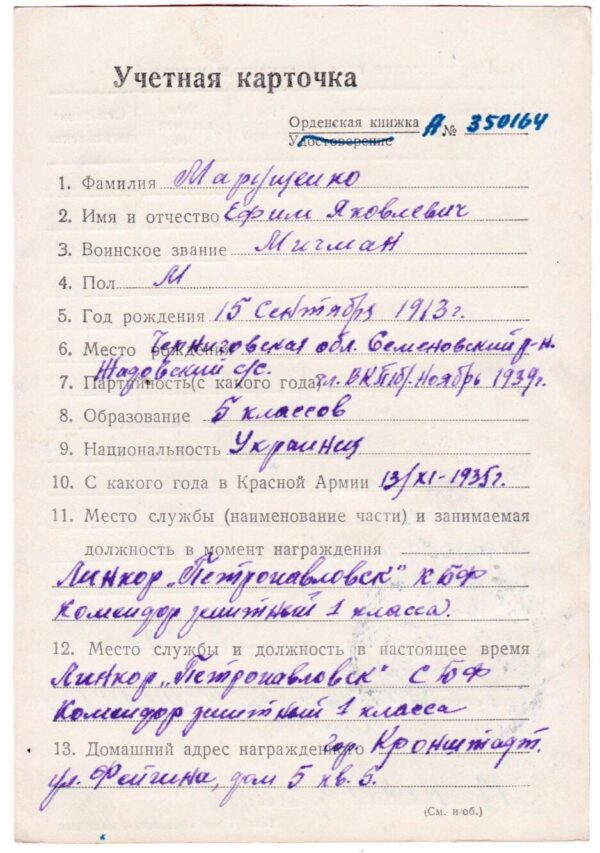 Учетная карточка
Орденская книжка А № 350164
Удостоверение
1. Фамилия Марущенко
2. Имя и отчество Ефим Яковлевич
3. Воинское звание Мичман
4. Пол М
5. Год рождения 15 Сентября 1913 г.
6. Место рождения Черниговская обл. Семеновский р-н.
Жадовский с/с.
7. Партийность (с какого года) чл. ВКП(б) Ноябрь 1939г.
8. Образование 5 классов
9. Национальность Украинец
10. С какого года в Красной Армии 13/XI-1935г.
11. Место службы (наименование части) и занимаемая
должность в момент награждения
Линкор „Петропавловск" КБФ
Комендор зенитный 1 класса.
12. Место службы и должность в настоящее время
Линкор „Петропавловск" СБФ
Комендор зенитный 1 класса
13. Домашний адрес награжденного гор. Кронштадт.
ул. Фейгина, дом 5 кв. 5.
(См. н/об.)